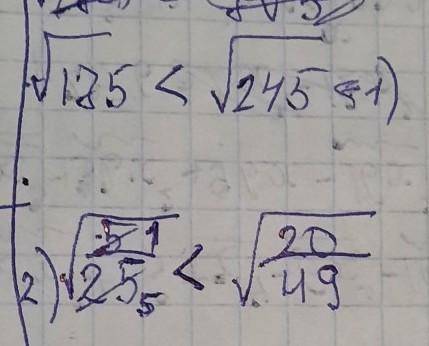 √175 < √245 1)
2) √5̶ 1/2̶5̶ 5 < √20/49